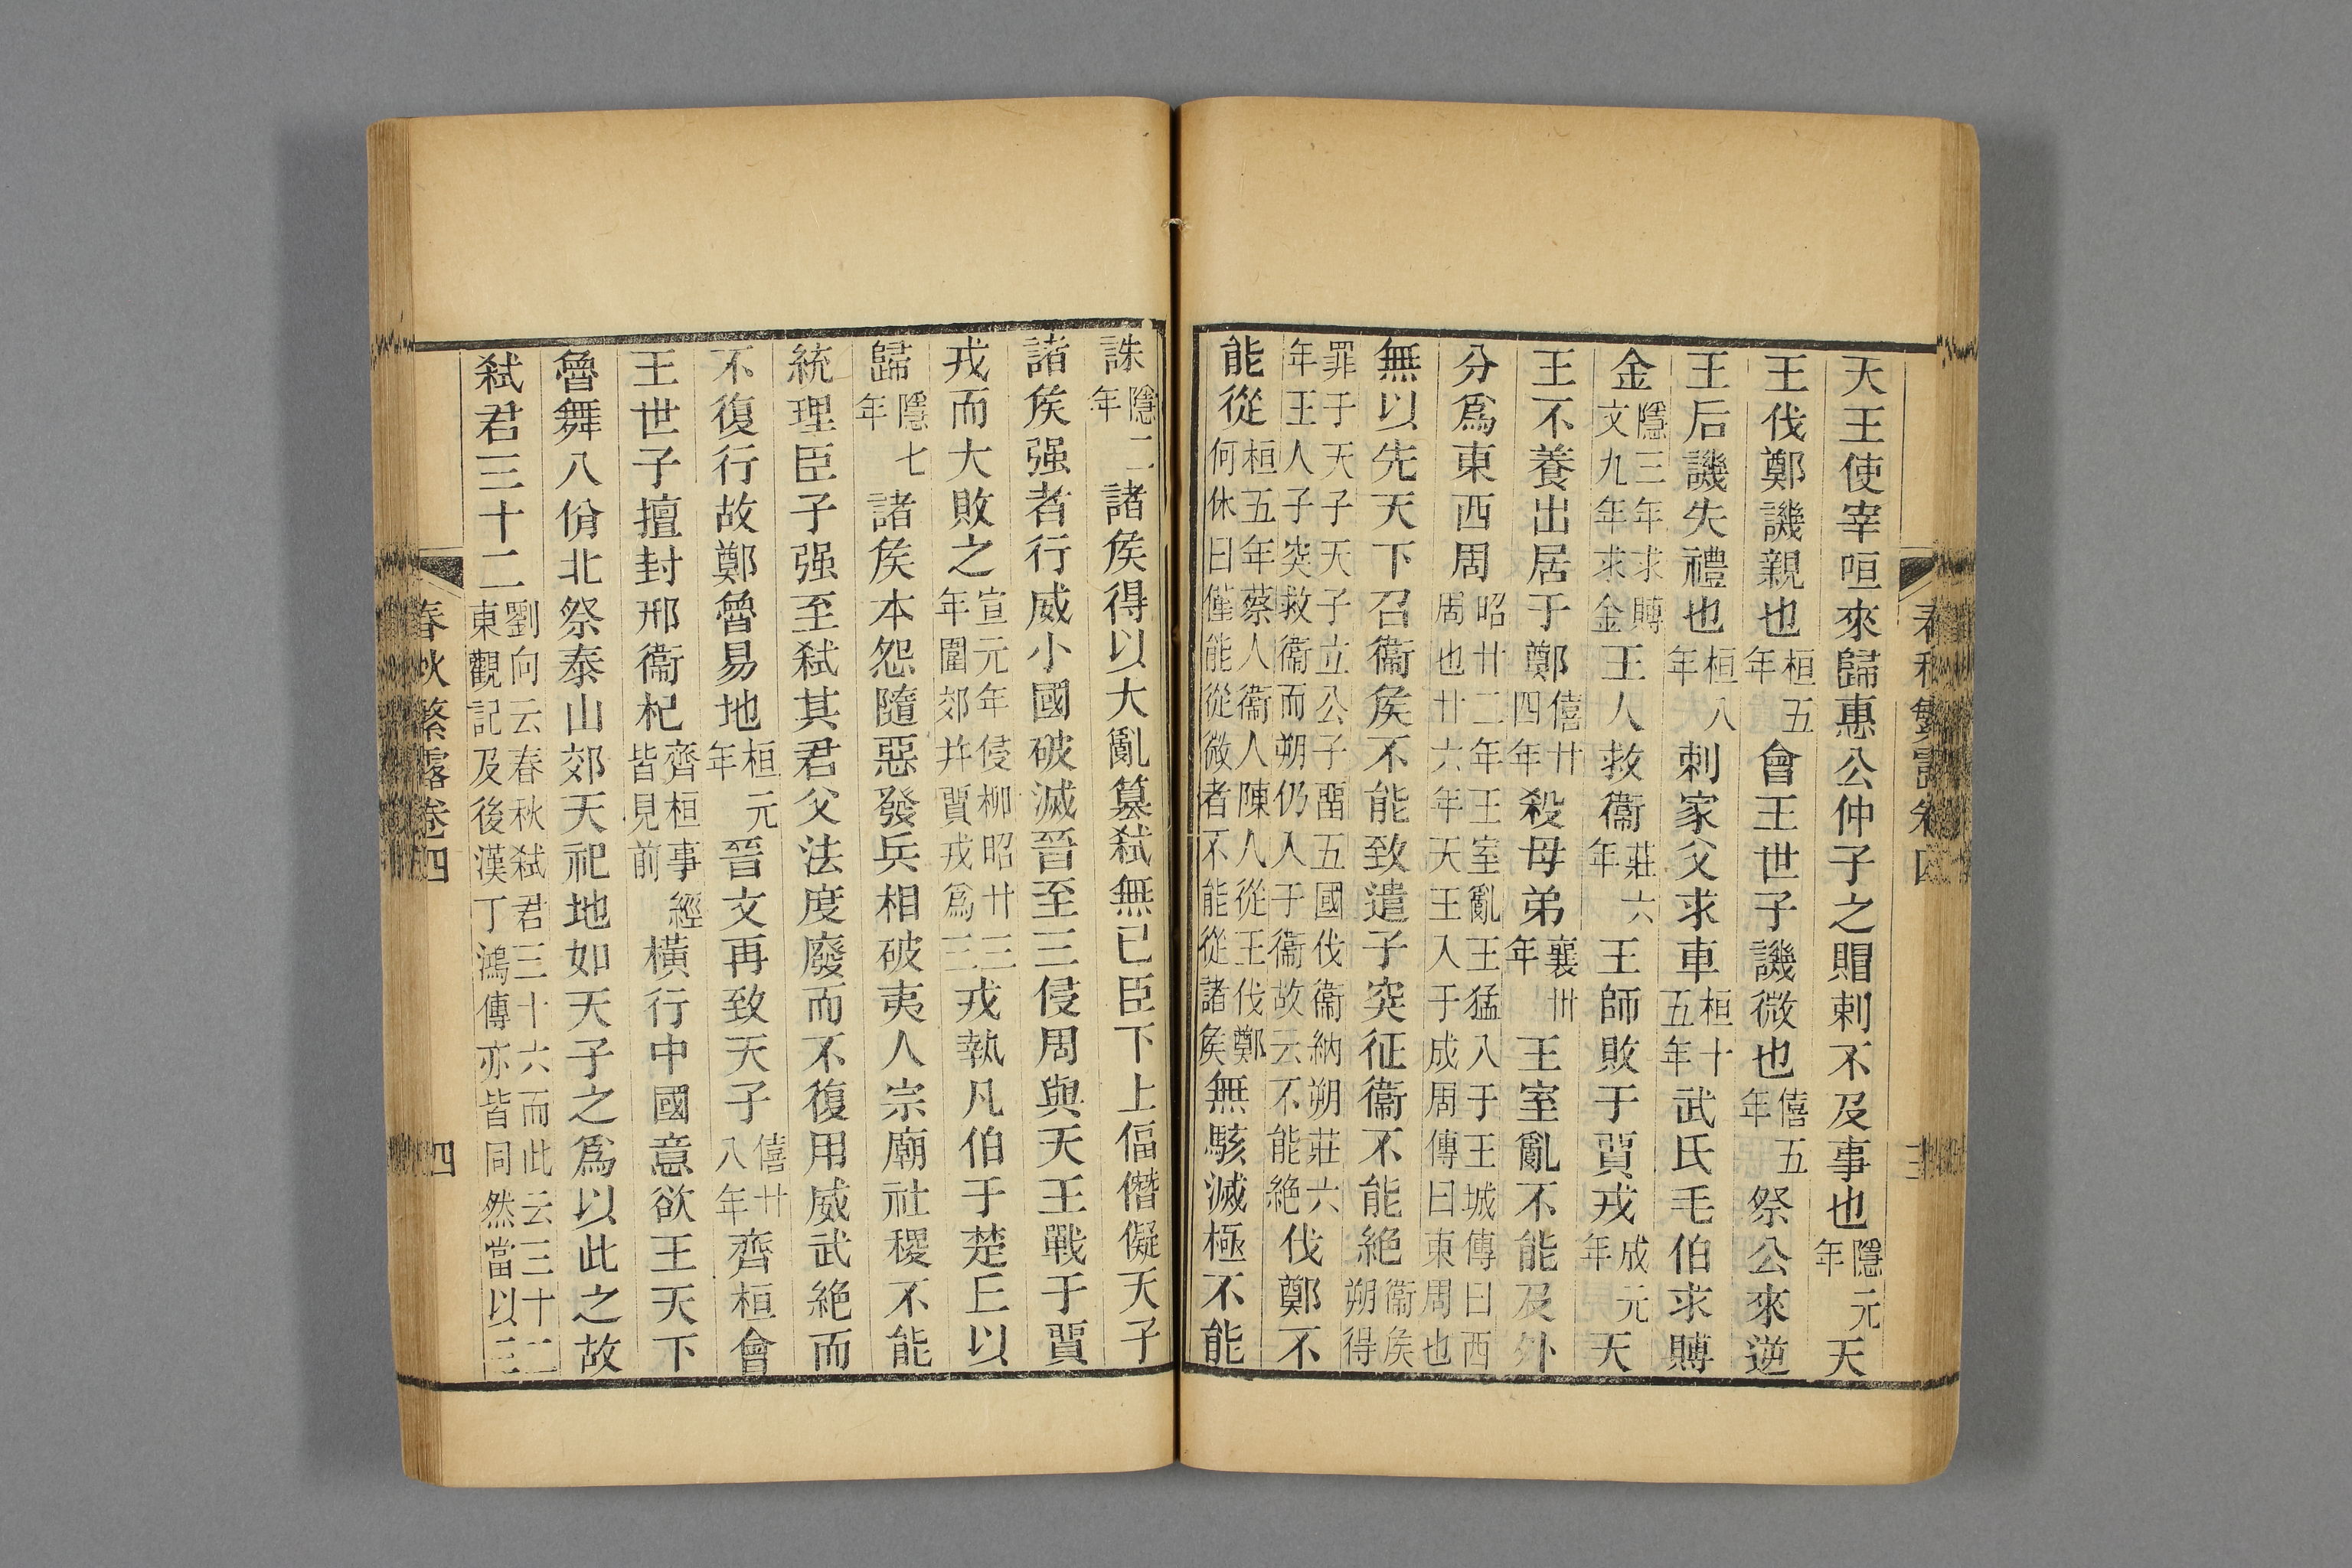 天王使宰咺來歸惠公仲子之賵刺不及事也隱元年天
王伐鄭譏親也桓五年會王世子譏微也僖五年祭公來逆
王后譏失禮也桓八年刺家父求車桓十五年武氏毛伯求賻
金隱三年求賻文九年求金王人救衞莊六年王師敗于貿戎成元年天
王不養出居于鄭僖廿四年殺母弟襄卅年王室亂不能及外
分爲東西周昭廿二年王室亂王猛入于王城傳曰西周也廿六年天王入于成周傳曰東周也
無以先天下召衞矦不能致遣子突征衞不能絕衞矦朔得
罪于天子天子立公子畱五國伐衞納朔莊六年王人子突救衞而朔仍入于衞故云不能絕伐鄭不
能從桓五年蔡人衞人陳人從王伐鄭何休曰僅能從微者不能從諸矦無駭滅極不能
誅隱二年諸矦得以大亂篡弑無已臣下上偪僭儗天子
諸矦强者行威小國破滅晉至三侵周與天王戰于貿
戎而大敗之宣元年侵柳昭廿三年圍郊幷貿戎爲三戎執凡伯于楚丘以
歸隱七年諸矦本怨隨惡發兵相破夷人宗廟社稷不能
統理臣子强至弑其君父法度廢而不復用威武絕而
不復行故鄭魯易地桓元年晉文再致天子僖廿八年齊桓會
王世子擅封邢衞杞齊桓事經皆見前橫行中國意欲王天下
魯舞八佾北祭泰山郊天祀地如天子之爲以此之故
弑君三十二劉向云春秋弑君三十六而此云三十二東觀記及後漢丁鴻傳亦皆同然當以三
春秋繁露卷四
四